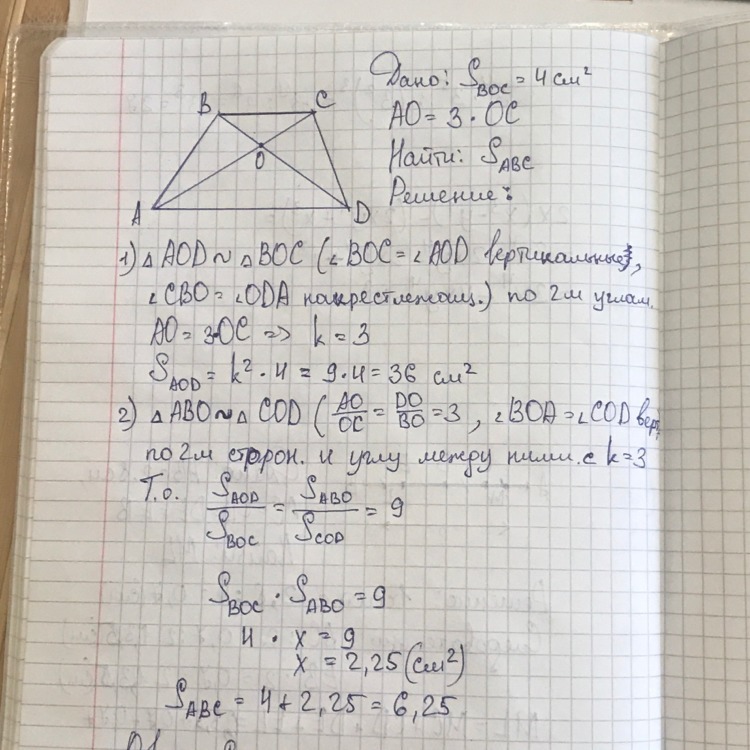 B C
O
A D
Дано: S_BOC = 4 см²
AO = 3 · OC
Найти: S_ABC
Решение:
1) △AOD ~ △BOC (∠BOC = ∠AOD вертикальные,
∠CBO = ∠ODA накрестлежащ.) по 2м углам.
AO = 3·OC => k = 3
S_AOD = k² · 4 = 9 · 4 = 36 см²
2) △ABO ~ △COD (AO/OC = DO/BO = 3, ∠BOA = ∠COD верт.
по 2м сторон. и углу между ними. с k=3
Т.о. S_AOD/S_BOC = S_ABO/S_COD = 9
S_BOC · S_ABO = 9
4 · x = 9
x = 2,25 (см²)
S_ABC = 4 + 2,25 = 6,25